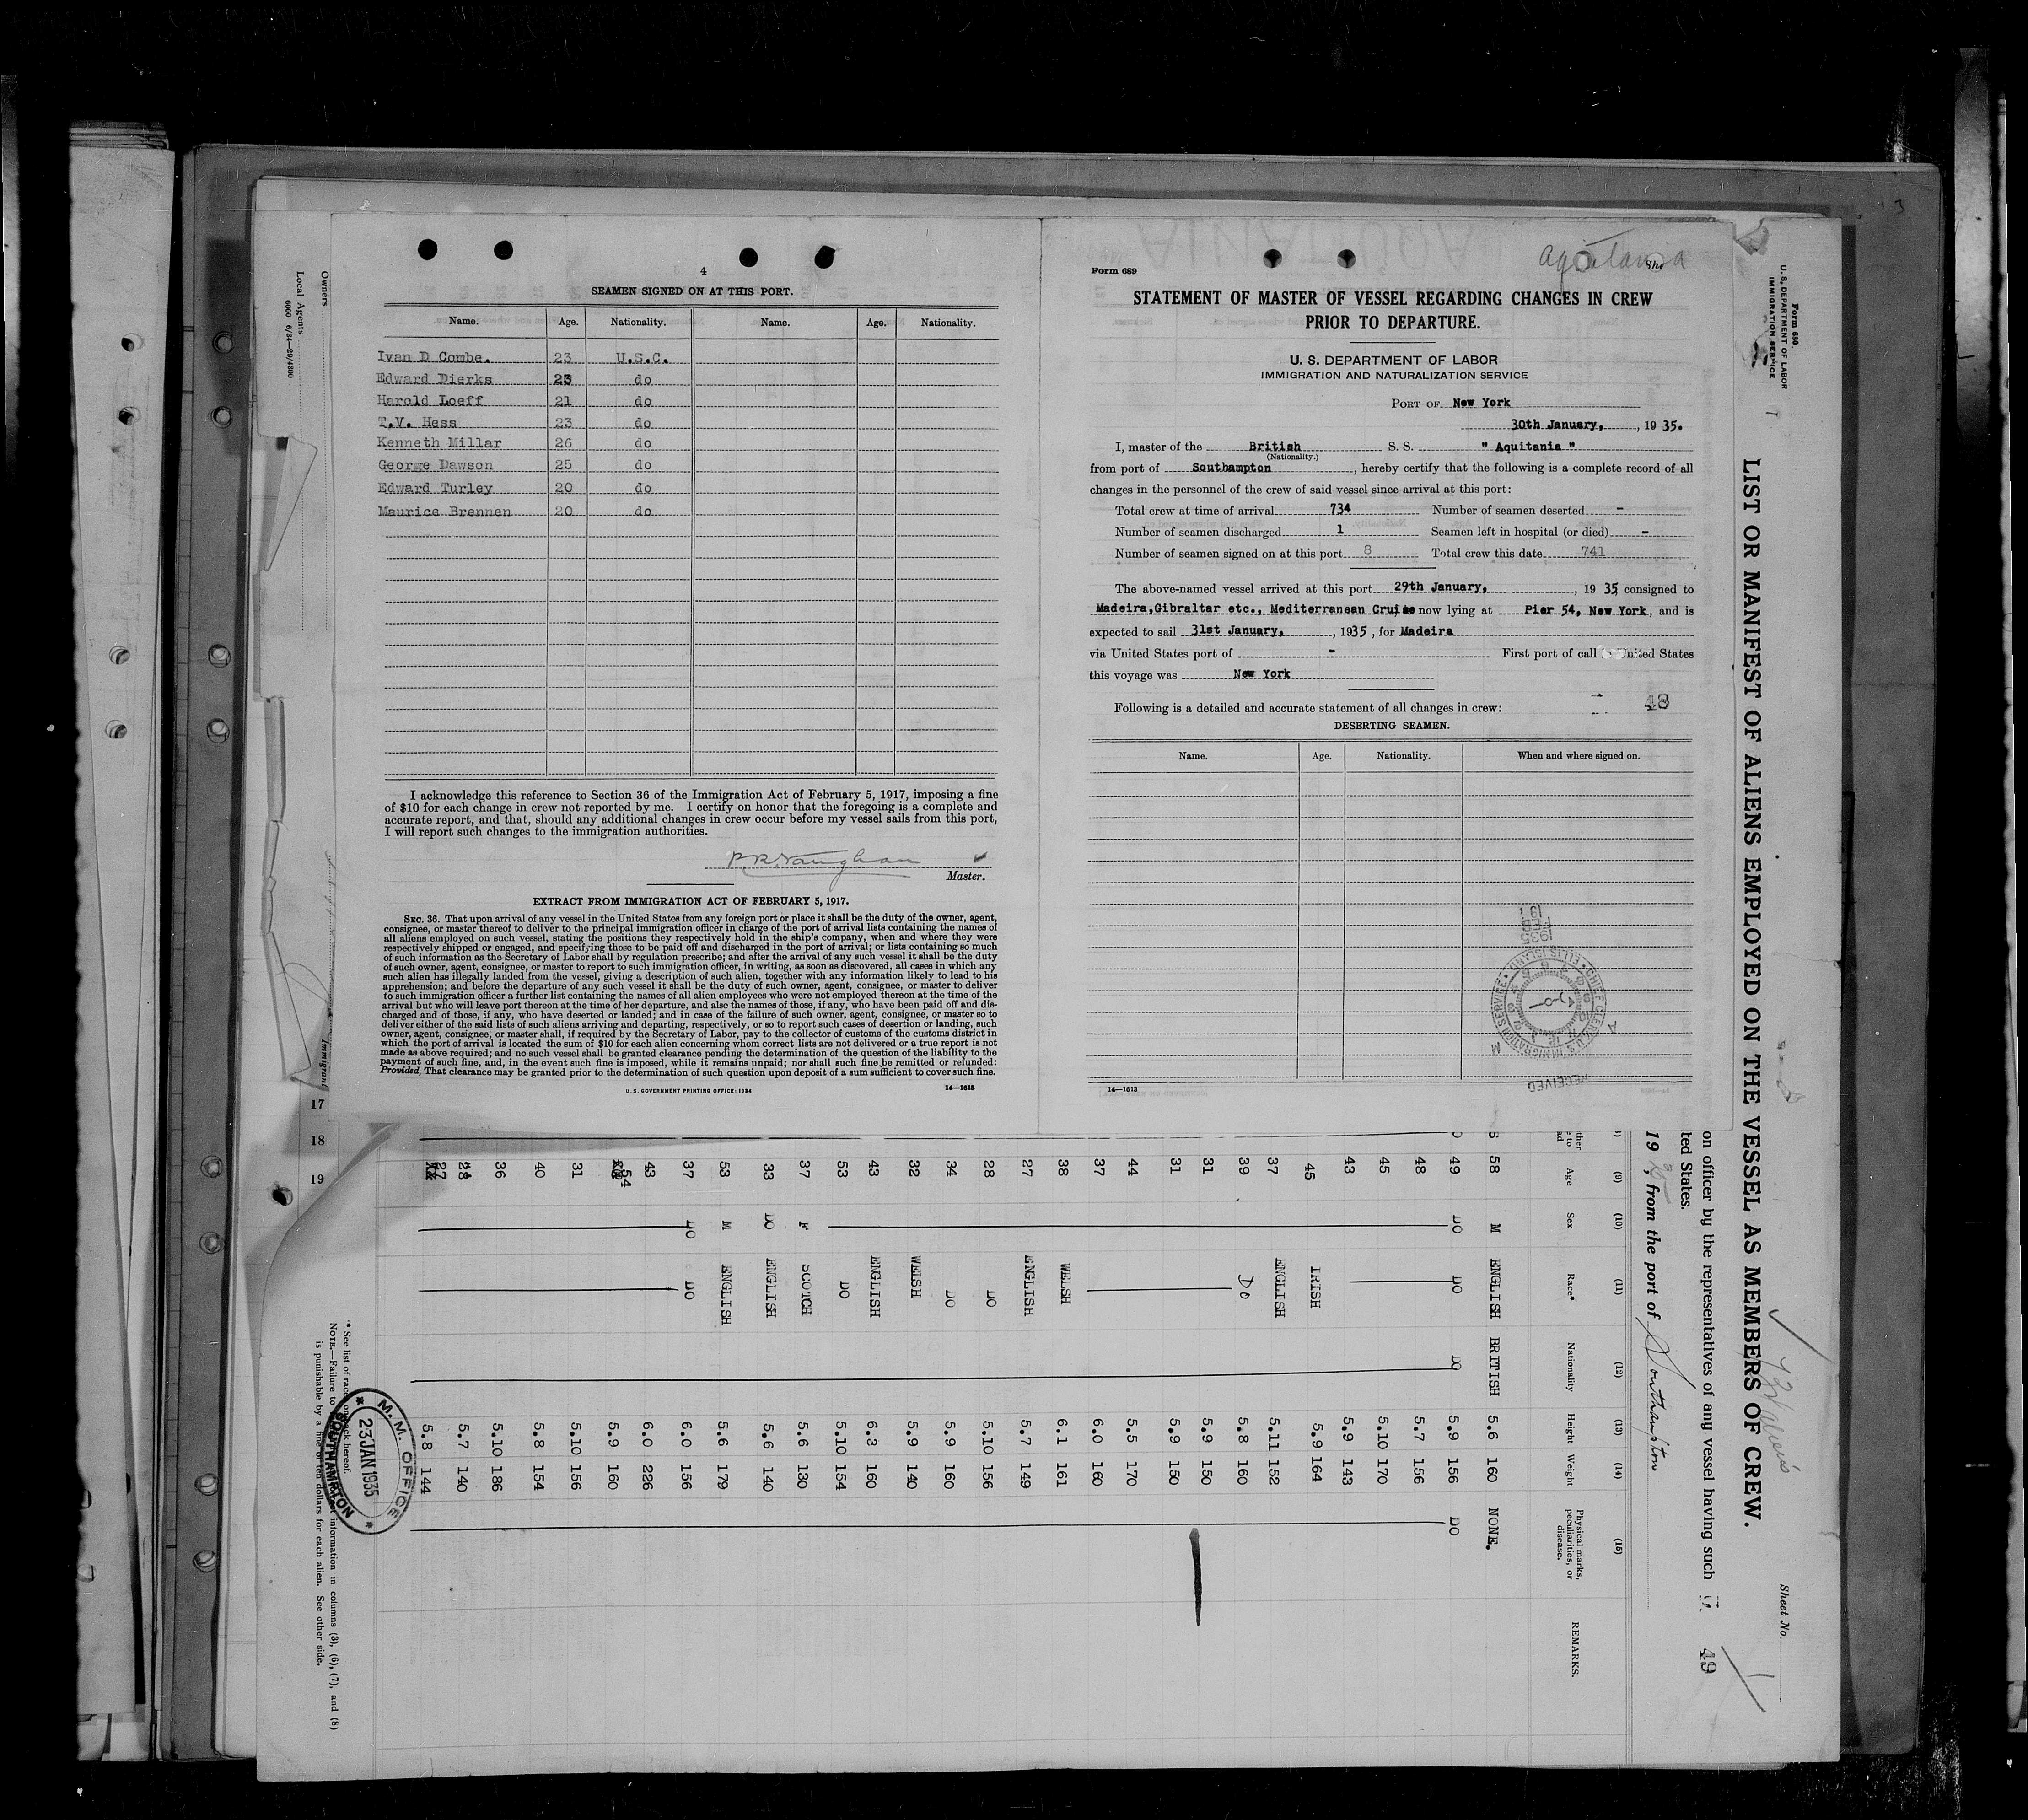 4
SEAMEN SIGNED ON AT THIS PORT.
Name. Age. Nationality. Name. Age. Nationality.
Ivan D Combe. 23 U.S.C.
Edward Dierks do
Harold Loeff 21 do
T.V. Hess 23 do
Kenneth Millar 26 do
George Dawson 25 do
Edward Turley 20 do
Maurice Brennen 20 do
I acknowledge this reference to Section 36 of the Immigration Act of February 5, 1917, imposing a fine
of $10 for each change in crew not reported by me. I certify on honor that the foregoing is a complete and
accurate report, and that, should any additional changes in crew occur before my vessel sails from this port,
I will report such changes to the immigration authorities.
Master.
EXTRACT FROM IMMIGRATION ACT OF FEBRUARY 5, 1917.
SEC. 36. That upon arrival of any vessel in the United States from any foreign port or place it shall be the duty of the owner, agent,
consignee, or master thereof to deliver to the principal immigration officer in charge of the port of arrival lists containing the names of
all aliens employed on such vessel, stating the positions they respectively hold in the ship's company, when and where they were
respectively shipped or engaged, and specifying those to be paid off and discharged in the port of arrival; or lists containing so much
of such information as the Secretary of Labor shall by regulation prescribe; and after the arrival of any such vessel it shall be the duty
of such owner, agent, consignee, or master to report to such immigration officer, in writing, as soon as discovered, all cases in which any
such alien has illegally landed from the vessel, giving a description of such alien, together with any information likely to lead to his
apprehension; and before the departure of any such vessel it shall be the duty of such owner, agent, consignee, or master to deliver
to such immigration officer a further list containing the names of all alien employees who were not employed thereon at the time of the
arrival but who will leave port thereon at the time of her departure, and also the names of those, if any, who have been paid off and dis-
charged and of those, if any, who have deserted or landed; and in case of the failure of such owner, agent, consignee, or master so to
deliver either of the said lists of such aliens arriving and departing, respectively, or so to report such cases of desertion or landing, such
owner, agent, consignee, or master shall, if required by the Secretary of Labor, pay to the collector of customs of the customs district in
which the port of arrival is located the sum of $10 for each alien concerning whom correct lists are not delivered or a true report is not
made as above required; and no such vessel shall be granted clearance pending the determination of the question of the liability to the
payment of such fine, and, in the event such fine is imposed, while it remains unpaid; nor shall such fine be remitted or refunded:
Provided, That clearance may be granted prior to the determination of such question upon deposit of a sum sufficient to cover such fine.
U. S. GOVERNMENT PRINTING OFFICE: 1934 14—1613
Form 689
Aquitania
STATEMENT OF MASTER OF VESSEL REGARDING CHANGES IN CREW
PRIOR TO DEPARTURE.
U. S. DEPARTMENT OF LABOR
IMMIGRATION AND NATURALIZATION SERVICE
PORT OF New York
30th January, , 19 35.
I, master of the British S. S. " Aquitania "
(Nationality.)
from port of Southampton , hereby certify that the following is a complete record of all
changes in the personnel of the crew of said vessel since arrival at this port:
Total crew at time of arrival 734 Number of seamen deserted -
Number of seamen discharged 1 Seamen left in hospital (or died) -
Number of seamen signed on at this port 8 Total crew this date 741
The above-named vessel arrived at this port 29th January, , 19 35 consigned to
Madeira,Gibraltar etc., Mediterranean Cruise now lying at Pier 54, New York, and is
expected to sail 31st January, , 1935 , for Madeira
via United States port of - First port of call United States
this voyage was New York
Following is a detailed and accurate statement of all changes in crew:
48
DESERTING SEAMEN.
Name. Age. Nationality. When and where signed on.
RECEIVED
CHIEF CLERK U.S. IMMIGRATION SERVICE
ELLIS ISLAND
14—1613
Form 680
U. S. DEPARTMENT OF LABOR
IMMIGRATION SERVICE
LIST OR MANIFEST OF ALIENS EMPLOYED ON THE VESSEL AS MEMBERS OF CREW.
Sheet No.
on officer by the representatives of any vessel having such
49
ted States.
19 , from the port of Southampton
(9) (10) (11) (12) (13) (14) (15)
Age Sex Race* Nationality Height Weight Physical marks, peculiarities, or disease. REMARKS.
58 M ENGLISH BRITISH 5.6 160 NONE.
49 DO DO DO 5.9 156 DO
48 5.7 156
45 5.10 170
43 5.9 143
45 IRISH 5.9 164
37 ENGLISH 5.11 152
39 DO 5.8 160
31 5.9 150
31 5.9 150
44 5.5 170
37 6.0 160
38 WELSH 6.1 161
27 ENGLISH 5.7 149
28 DO 5.10 156
34 DO 5.9 160
32 WELSH 5.9 140
43 ENGLISH 6.3 160
53 DO 5.10 154
37 F SCOTCH 5.6 130
33 DO ENGLISH 5.6 140
53 M ENGLISH 5.6 179
37 DO DO 6.0 156
43 6.0 226
54 5.9 160
31 5.10 156
40 5.8 154
36 5.10 186
5.7 140
27 5.8 144
* See list of races on back hereof.
NOTE.—Failure to information in columns (3), (6), (7), and (8)
is punishable by a fine of ten dollars for each alien. See other side.
M. M. OFFICE
23 JAN 1935
SOUTHAMPTON
Owners
Local Agents
6000 6/34—29/4300
Immigrant
17
18
19